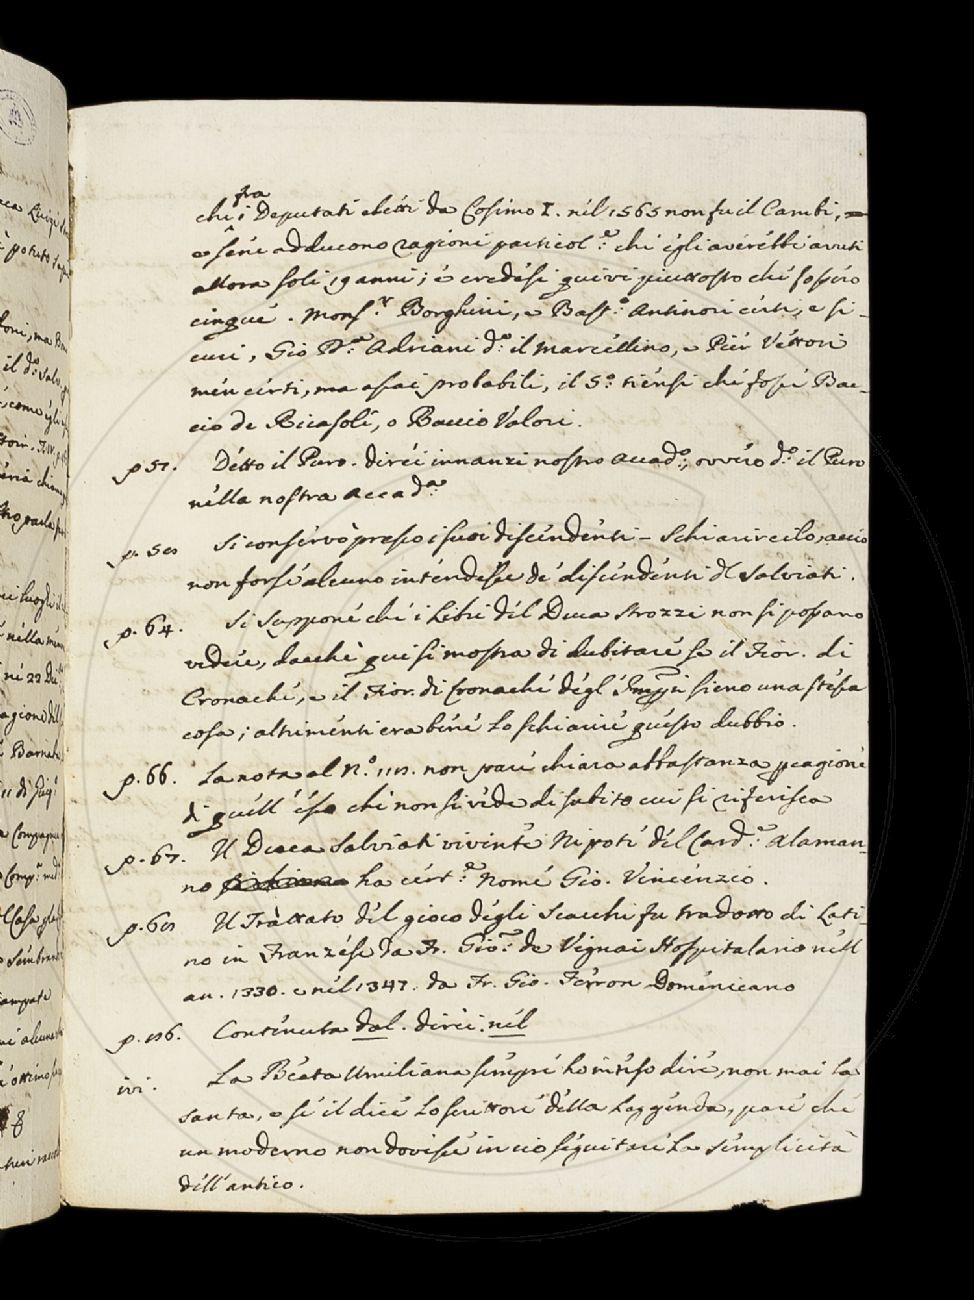 fra
chi i Deputati eletti da Cosimo I. nel 1565 non fu il Cambi, =
e sene adducono ragioni particol.e che egli averebbe avuti
allora soli 19 anni; e credesi quivi piuttosto che fossero
cinque. Mons.r Borghini, e Bast.o Antinori certi, e si-
curi, Gio Ba.
 Adriani d.o il Marcellino, e Pier Vettori
men certi, ma assai probabili, il 5.o tiensi che fosse Bac-
cio de Ricasoli, o Baccio Valori.
p 57. Detto il Puro. direi innanzi nostro Accad.o, ovvero d.o il Puro
nella nostra Accad.a
p. 58 Si conservò presso i suoi discendenti – Schiarircelo, accio
non forse alcuno intendesse de discendenti del Salviati.
p. 64. Si suppone che i Libri del Duca Strozzi non si possano
vedere, dacchè qui si mostra di dubitare se il Fior. di
Cronache, e il Fior. di Cronache degl' sieno una stessa
cosa; altrimenti era bene lo schiarire questo dubbio.
p. 66. La nota al N.o non pare chiara abbastanza pcagione
di quell' esso che non si vede di subito cui si riferisca
p. 67. Il Duca Salviati vivente Nipote del Card.e Alaman-
no ha cert.e Nome Gio. Vincenzio.
p. 68 Il Trattato del gioco degli Scacchi fu tradotto di Lati-
no in Franzese da Fr. Gio: de Vignai Hospitalario nell
an. 1330. e nel 1347. da Fr. Gio. Ferron Domenicano
p. 86. Contenuta dal. direi. nel
ivi. La Beata Umiliana sempre ho inteso dire, non mai la
Santa, e se il dice lo scrittore della Leggenda, pare che
un moderno non dovesse in ciò seguitare la semplicità
dell'antico.